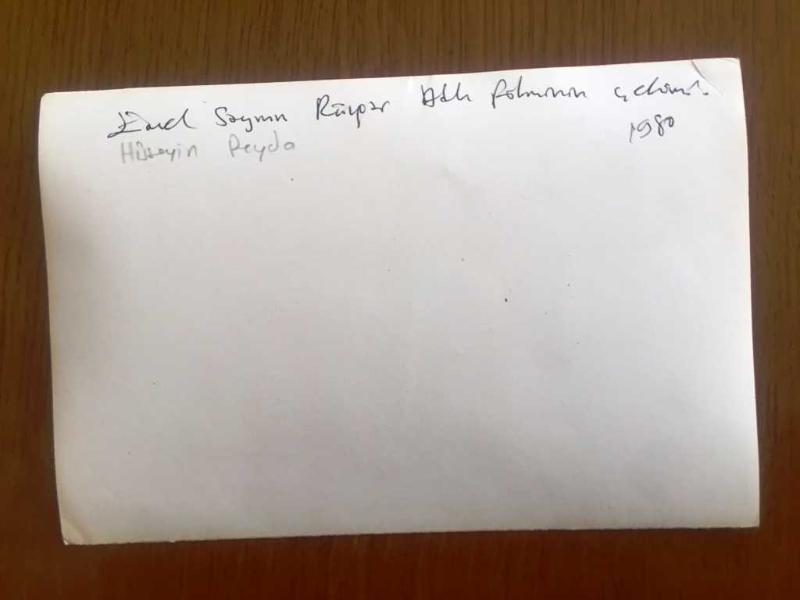 Emel Sayının Rüzgar Adlı filminin çekimi.
1980
Hüseyin Peyda